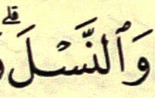 وَٱلنَّسْلَۚ